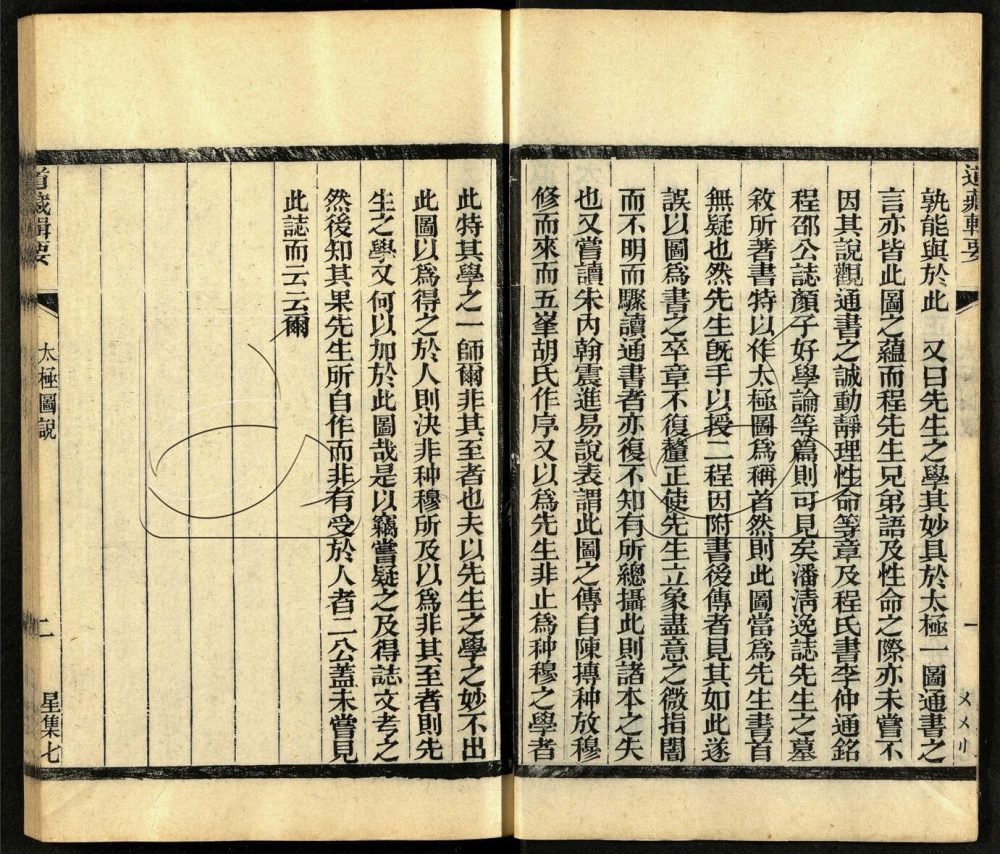 道藏輯要
孰能與於此 又曰先生之學其妙具於太極一圖通書之
言亦皆此圖之蘊而程先生兄弟語及性命之際亦未嘗不
因其說觀通書之誠動靜理性命等章及程氏書李仲通銘
程邵公誌顏子好學論等篇則可見矣潘淸逸誌先生之墓
敘所著書特以作太極圖爲稱首然則此圖當爲先生書首
無疑也然先生旣手以授二程因附書後傳者見其如此遂
誤以圖爲書之卒章不復釐正使先生立象盡意之微指闇
而不明而驟讀通書者亦復不知有所總攝此則諸本之失
也又嘗讀朱內翰震進易說表謂此圖之傳自陳摶种放穆
修而來而五峯胡氏作序又以爲先生非止爲种穆之學者
此特其學之一師爾非其至者也夫以先生之學之妙不出
此圖以爲得之於人則決非种穆所及以爲非其至者則先
生之學又何以加於此圖哉是以竊嘗疑之及得誌文考之
然後知其果先生所自作而非有受於人者二公蓋未嘗見
此誌而云云爾
道藏輯要 太極圖說 二 星集七